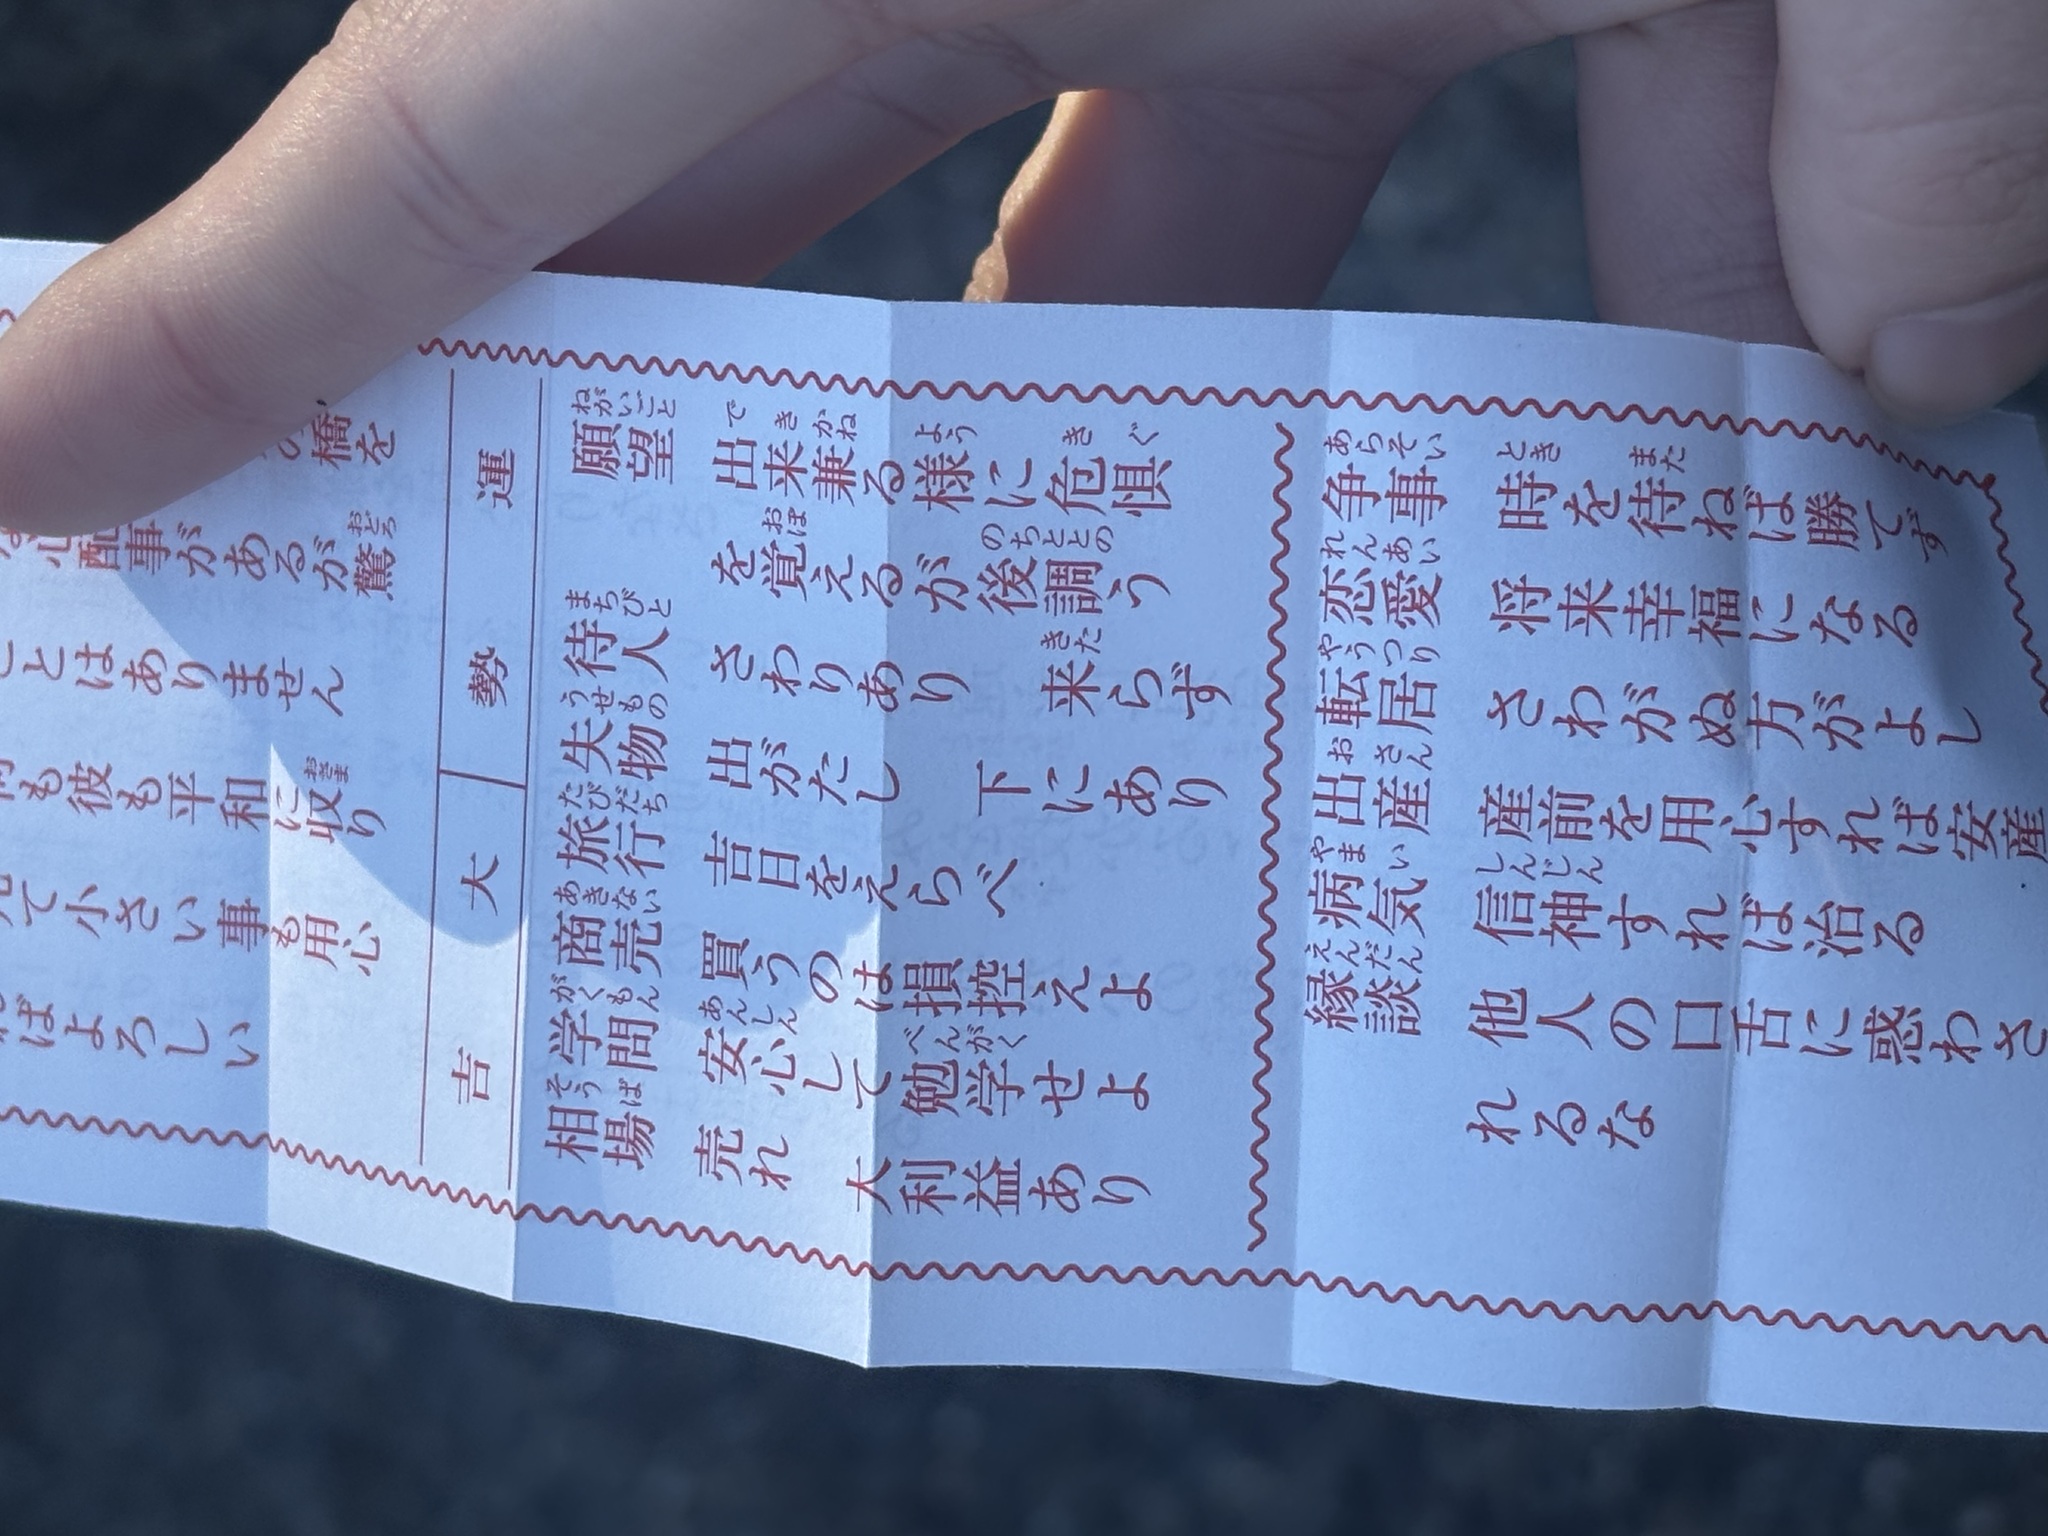 橋を
心配事があるが驚
ことはありません
も彼も平和に収り
て小さい事も用心
ばよろしい
運勢 大吉
願望 出来兼る様に危惧
を覚えるが後調う
待人 さわりあり 来らず
失物 出がたし 下にあり
旅行 吉日をえらべ
商売 買うのは損控えよ
学問 安心して勉学せよ
相場 売れ 大利益あり
争事 時を待ねば勝てず
恋愛 将来幸福になる
転居 さわがぬ方がよし
出産 産前を用心すれば安産
病気 信神すれば治る
縁談 他人の口舌に惑わさ
れるな